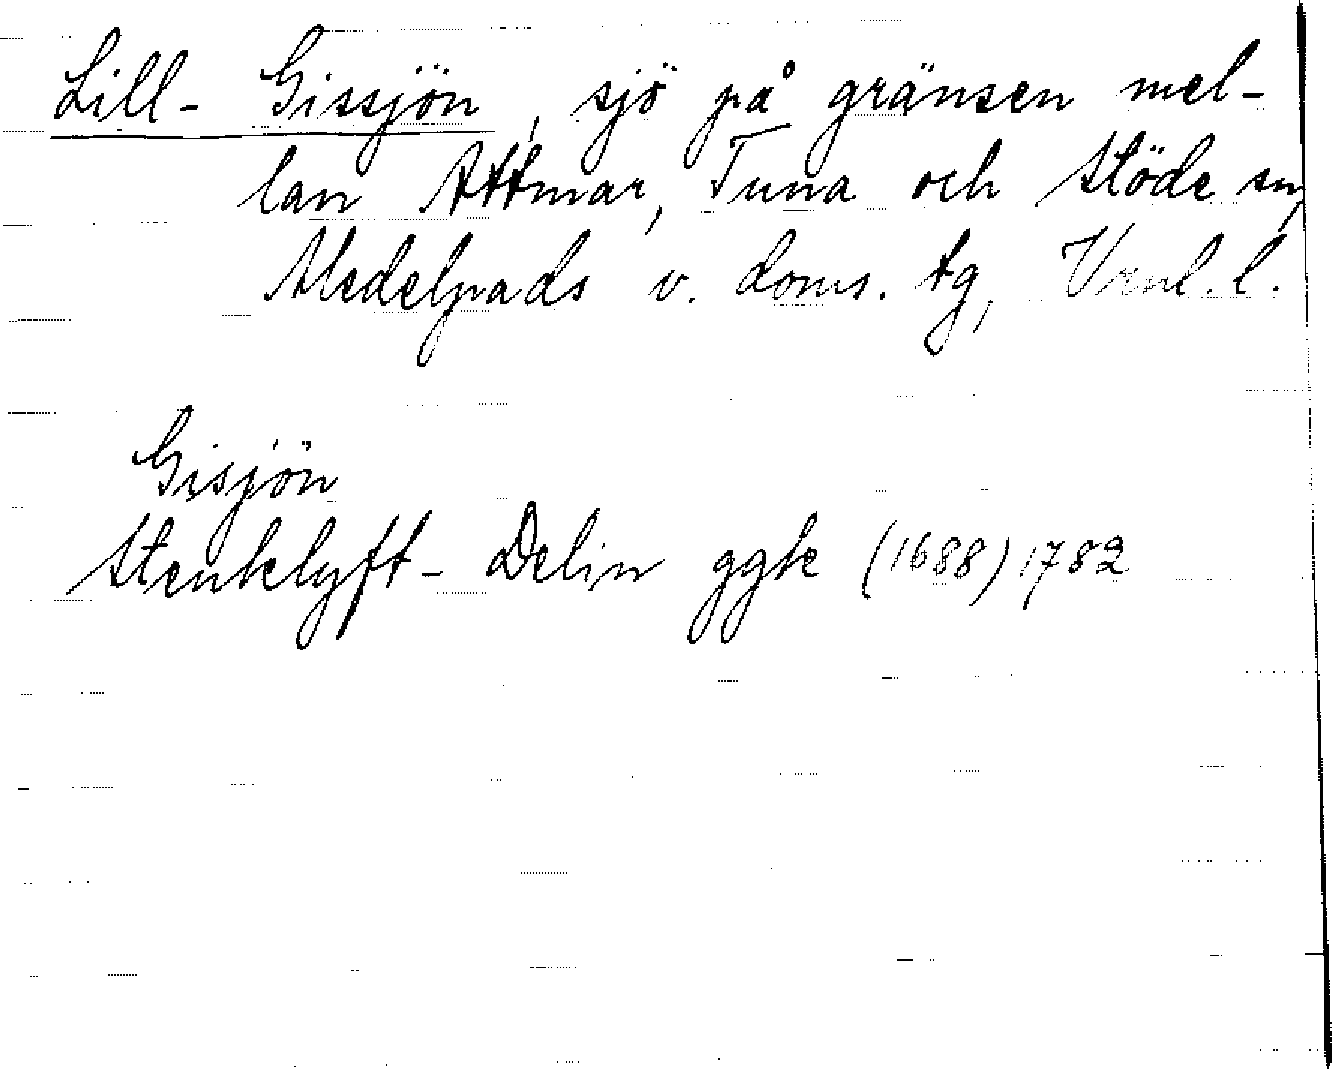 Lill-Gissjön, sjö på gränsen mel-
lan Attmar, Tuna och Stöde sn,
Medelpads v. doms. tg, Vrnl. l.
Gisjön
Stenklyft-Delin ggk (1688) 1782